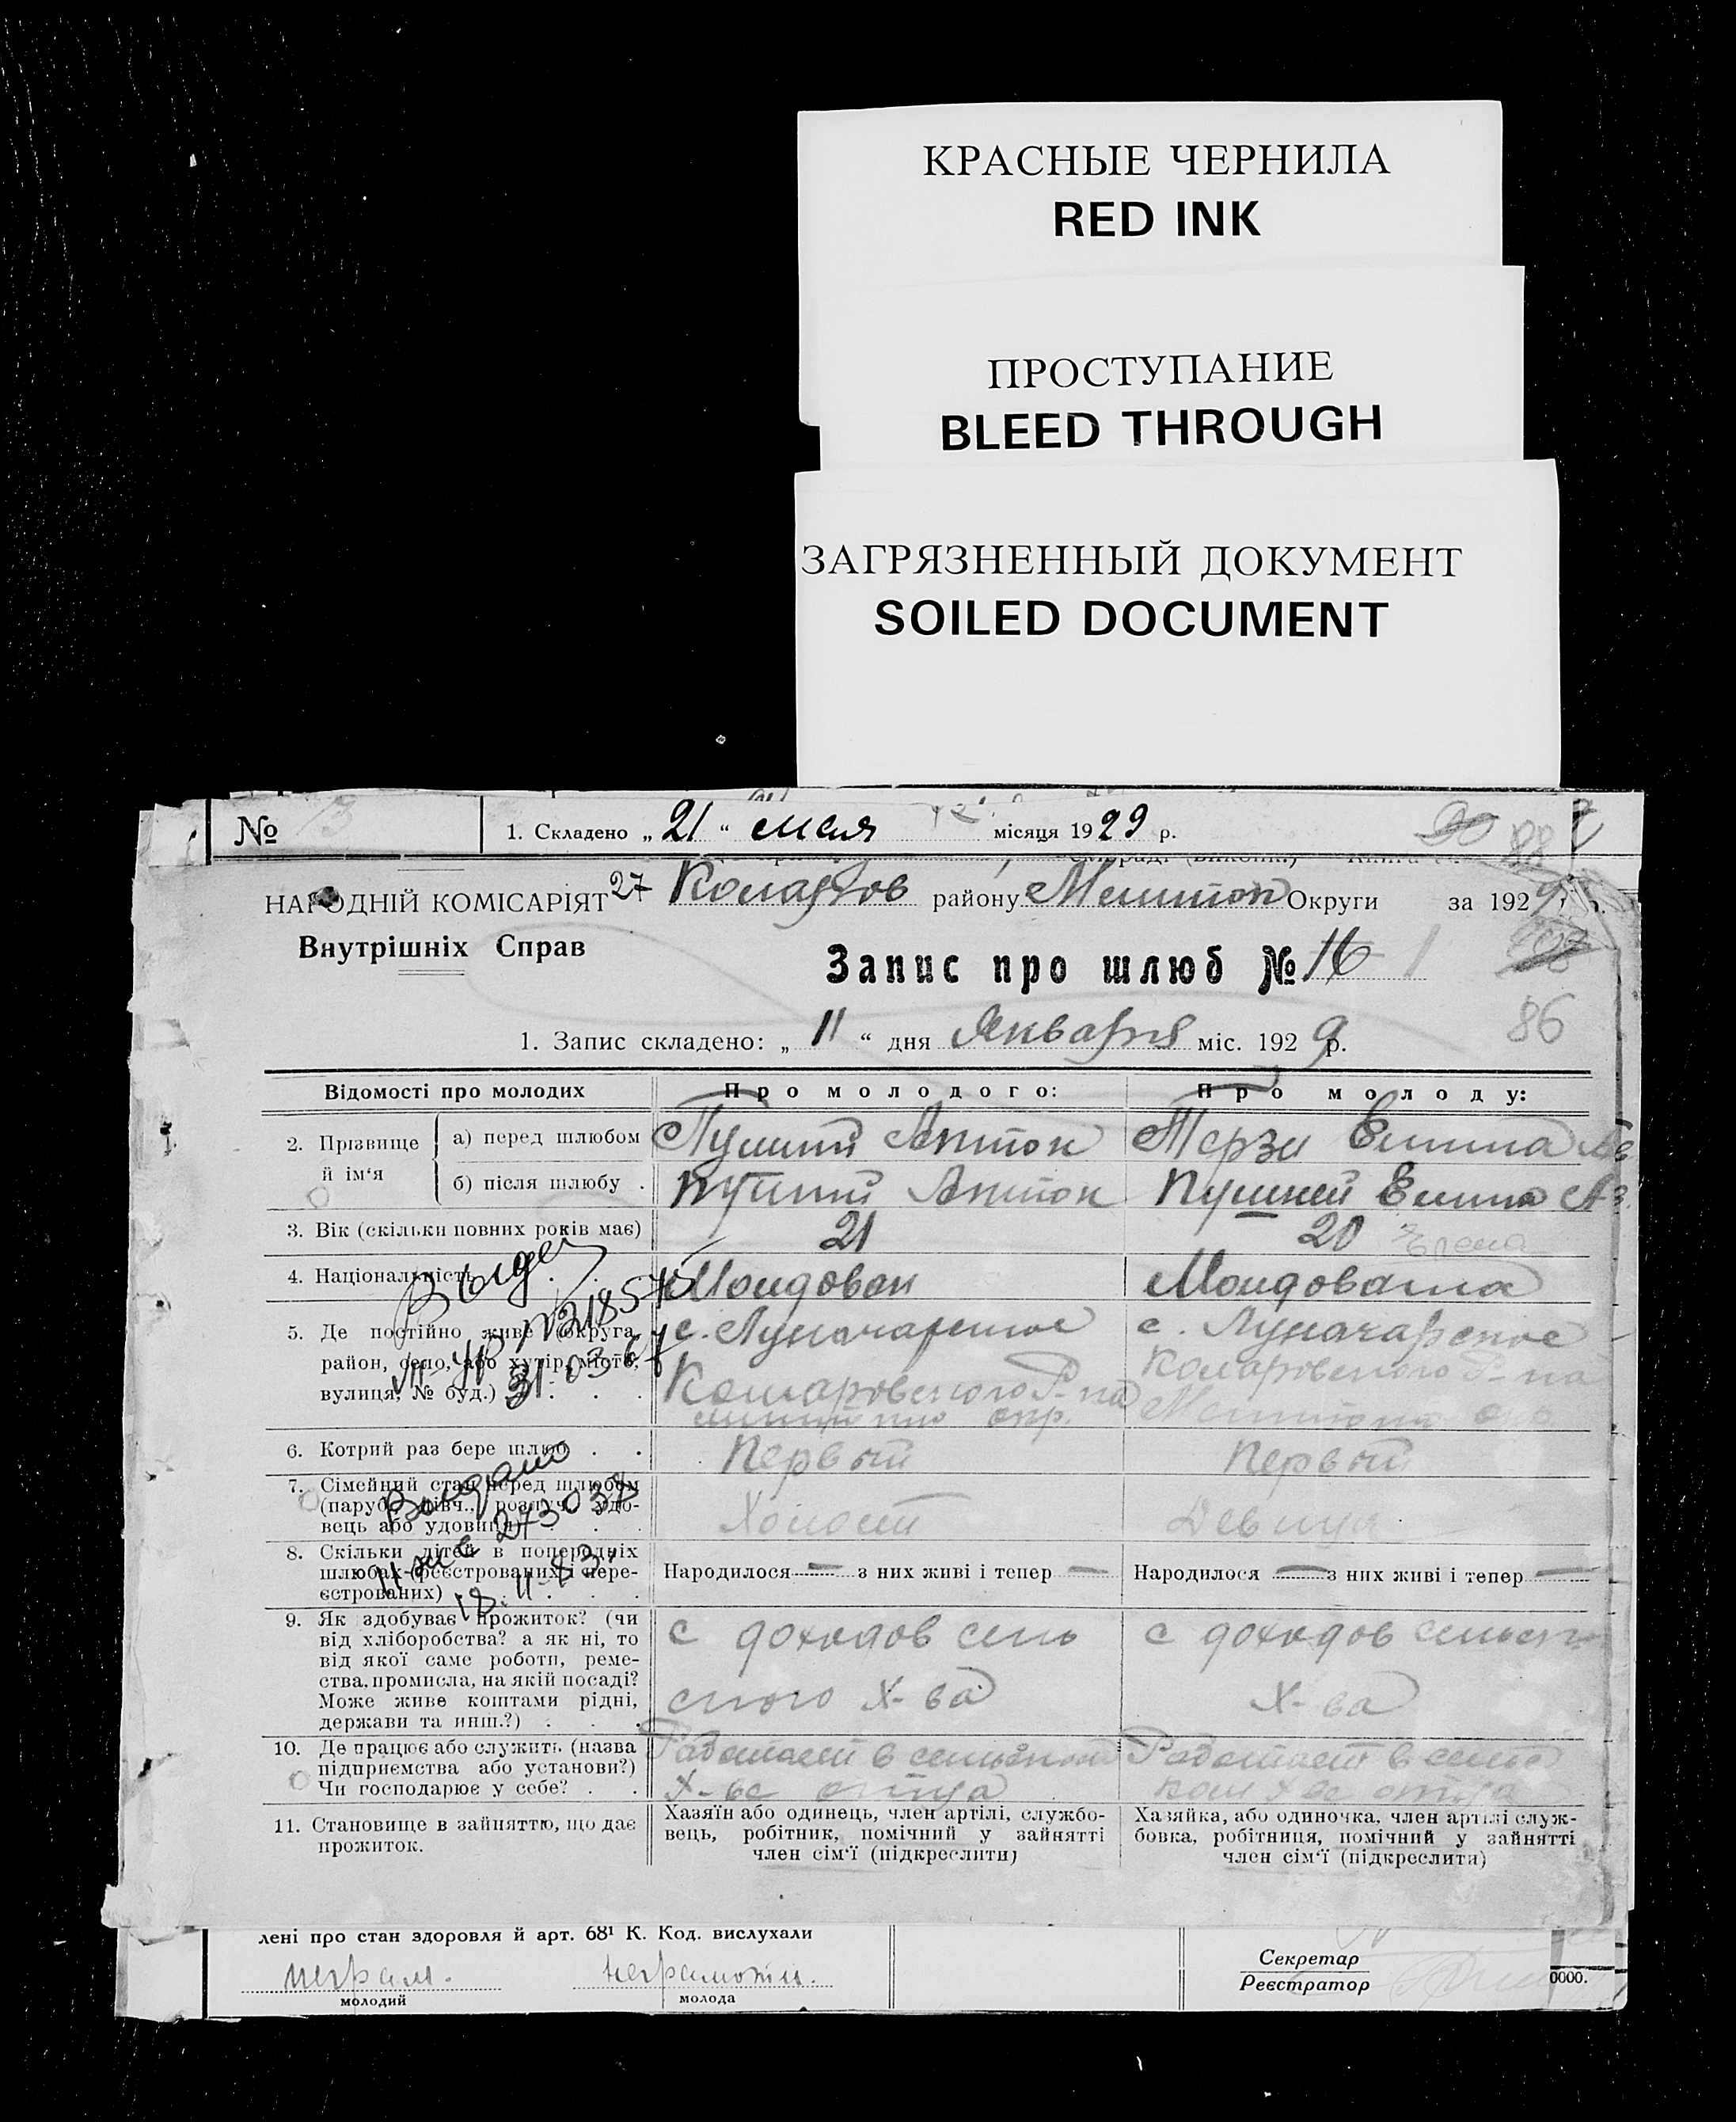 КРАСНЫЕ ЧЕРНИЛА
RED INK
ПРОСТУПАНИЕ
BLEED THROUGH
ЗАГРЯЗНЕННЫЙ ДОКУМЕНТ
SOILED DOCUMENT
№ 13 1. Складено „ 21 “ мая місяця 1929 р.
88
НАРОДНІЙ КОМІСАРІЯТ 27 району Округи за 1929 р.
Внутрішніх Справ
Запис про шлюб № 16
86
1. Запис складено: „ 11 “ дня Января міс. 1929 р.
Відомості про молодих Про молодого: Про молоду:
2. Прізвище й ім‘я
а) перед шлюбом Антон Терзи
б) після шлюбу . Антон Пушкей
3. Вік (скільки повних років має) 21 20
4. Національність Молдован Молдованка
5. Де постійно живе (округа, район, село, або хутір, місто, вулиця, № буд.) с. Луначарское с. Луначарское
Комаровского Р-на Комаровского Р-на
окр.
31 03 67
6. Котрий раз бере шлюб . . Первый Первый
7. Сімейний стан перед шлюбом (паруб., дівч., розлуч., удовець або удовиця) Холост Девица
Выдано
273038
18.11-83.
8. Скільки дітей в попередніх шлюбах (реєстрованих і нереєстрованих) Народилося — з них живі і тепер — Народилося — з них живі і тепер —
9. Як здобуває прожиток? (чи
від хліборобства? а як ні, то
від якої саме роботи, реме-
ства, промисла, на якій посаді?
Може живе коштами рідні,
держави та инш.?) . . .
с доходов сель
ского х-ва
с доходов сельск
х-ва
10. Де працює або служить (назва
підприємства або установи?)
Чи господарює у себе? . .
Работает в сельском
х-ве отца
Работает в сельс
ком х-ве отца
11. Становище в зайняттю, що дає
прожиток.
Хазяїн або одинець, член артілі, службо-
вець, робітник, помічний у зайнятті
член сім‘ї (підкреслити)
Хазяйка, або одиночка, член артілі служ-
бовка, робітниця, помічний у зайнятті
член сім‘ї (підкреслити)
лені про стан здоровля й арт. 68¹ К. Код. вислухали
неграм. неграмотн.
молодий молода
Секретар
Реєстратор
0000.